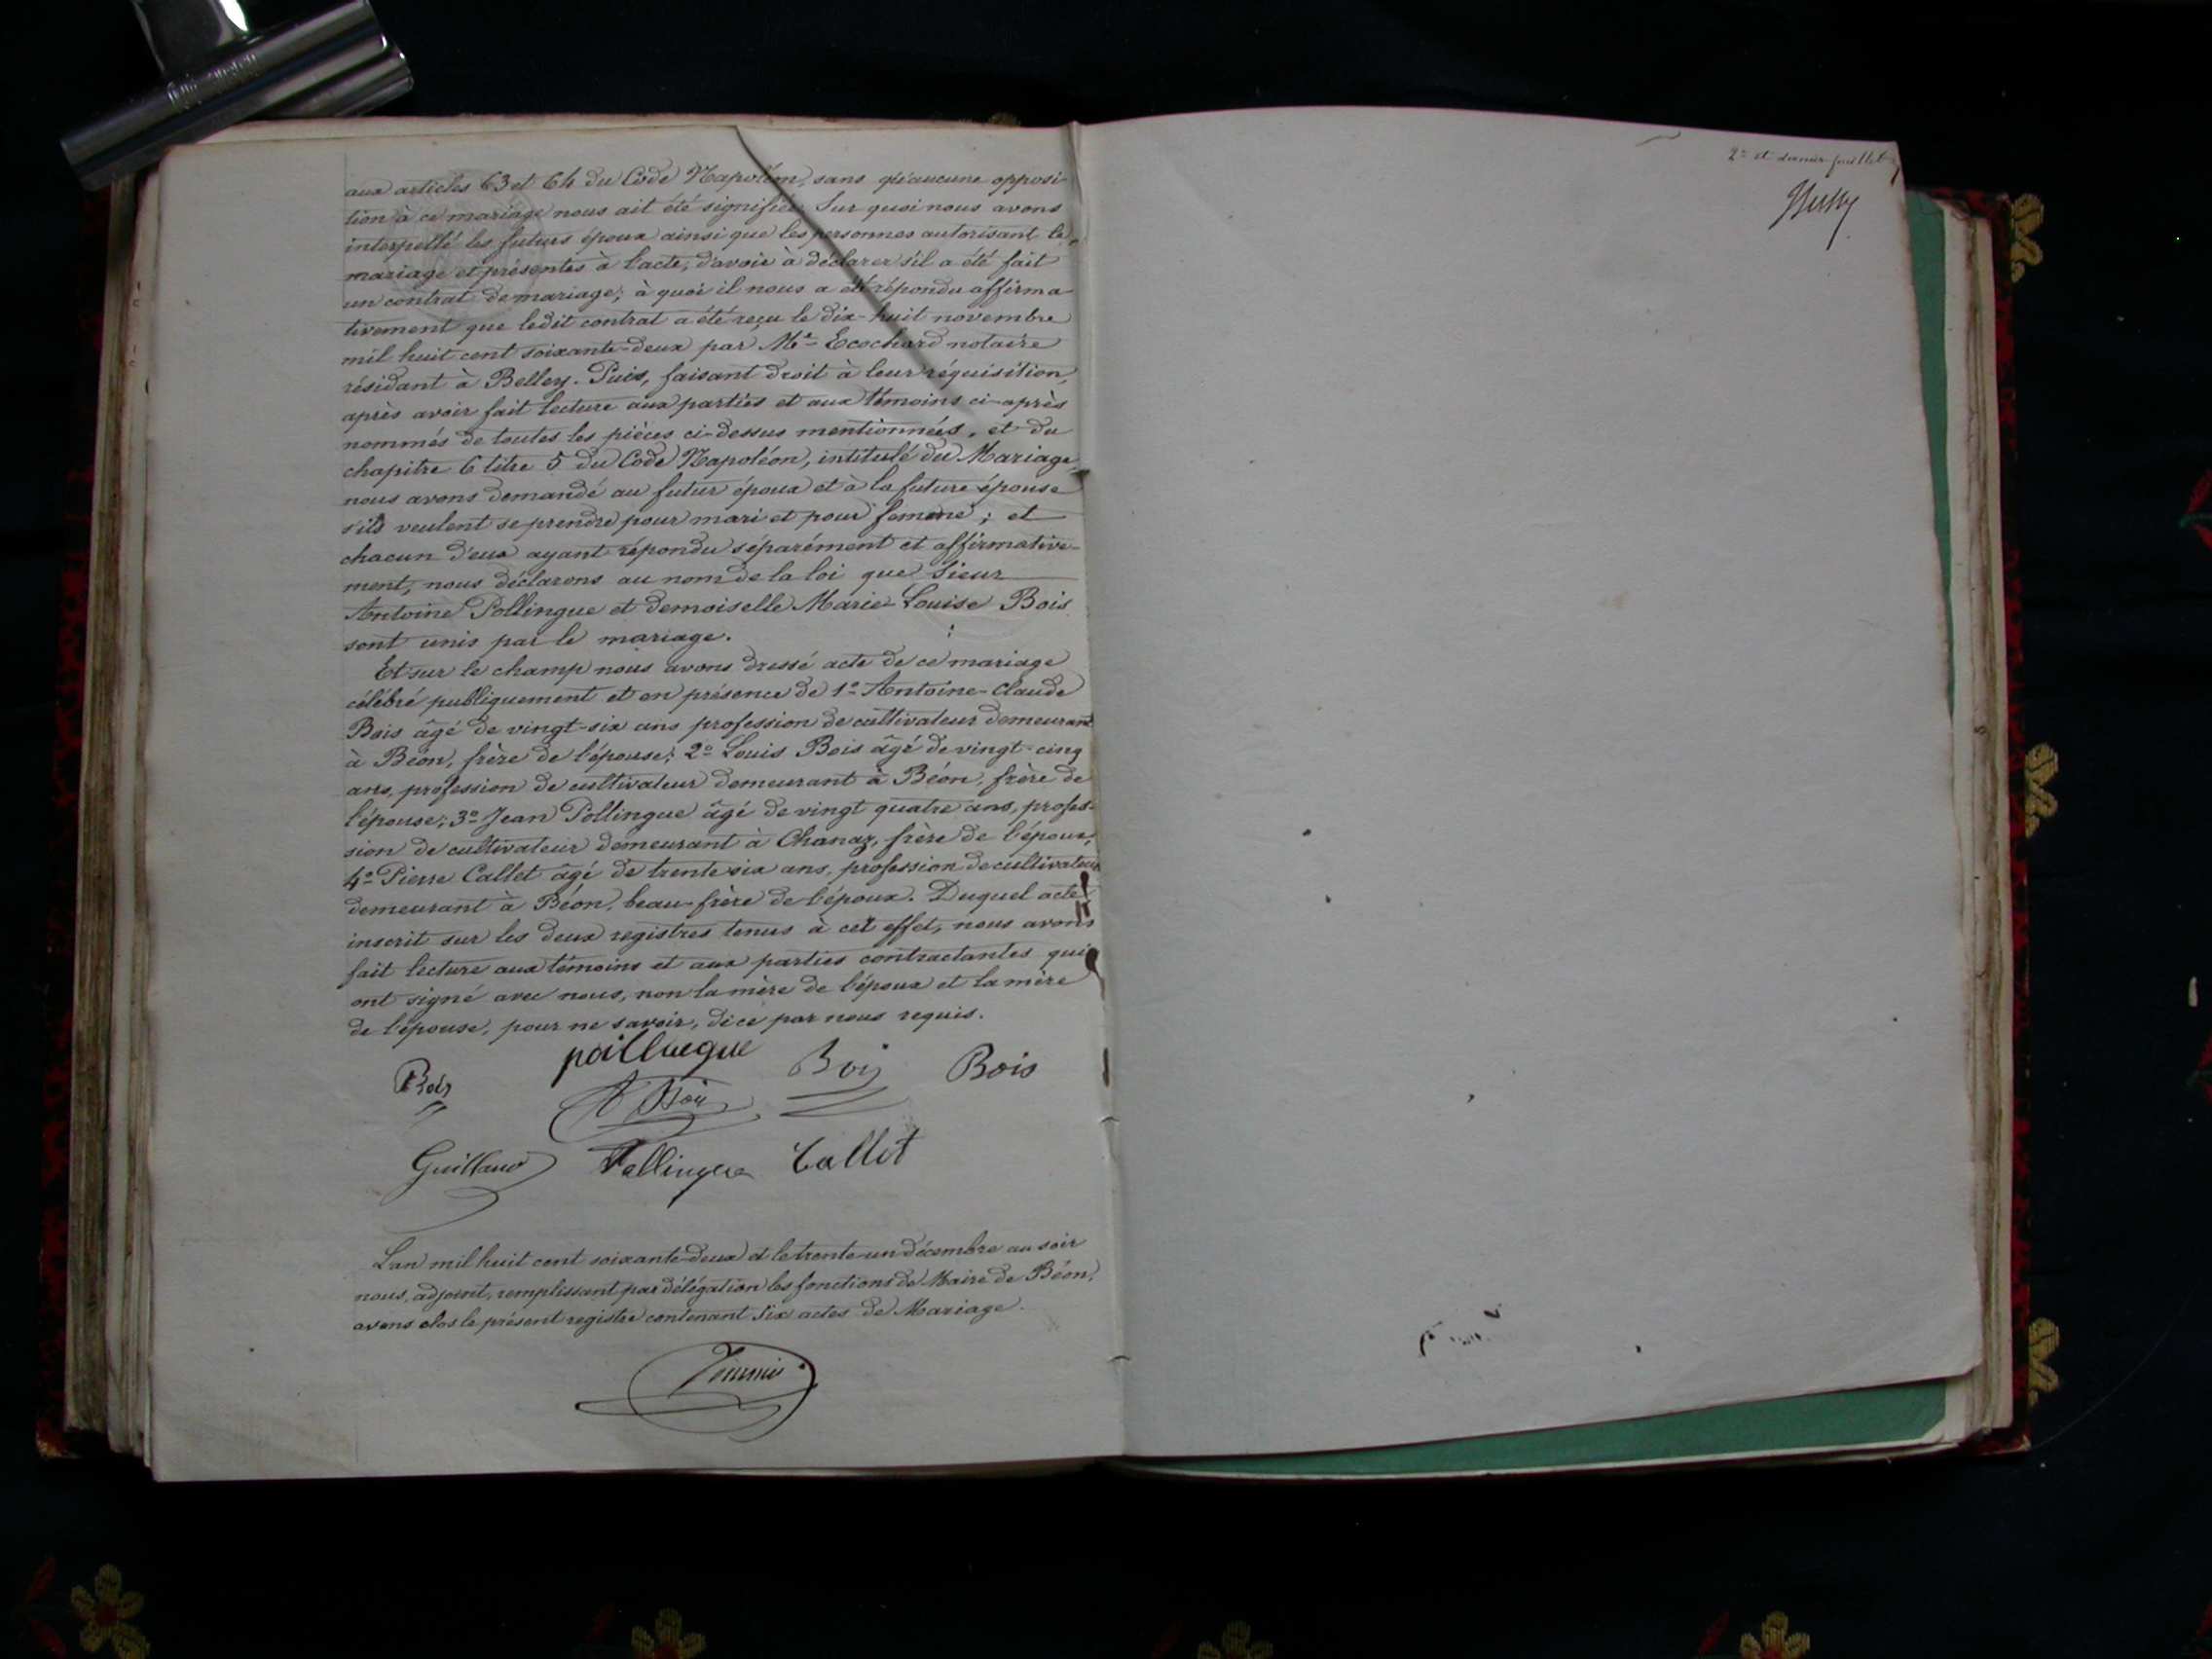 aux articles 63 et 64 du Code Napoléon, sans qu'aucune opposi-
tion à ce mariage nous ait été signifiée. Sur quoi nous avons
interpellé les futurs époux ainsi que les personnes autorisant le
mariage et présentes à l'acte, d'avoir à déclarer s'il a été fait
un contrat de mariage; à quoi il nous a été répondu affirma
tivement que ledit contrat a été reçu le dix-huit novembre
mil huit cent soixante-deux par Me Ecochard notaire
résidant à Belley. Puis, faisant droit à leur réquisition,
après avoir fait lecture aux parties et aux témoins ci-après
nommés de toutes les pièces ci-dessus mentionnées, et du
chapitre 6 titre 5 du Code Napoléon, intitulé du Mariage,
nous avons demandé au futur époux et à la future épouse
s'ils veulent se prendre pour mari et pour femme; et
chacun d'eux ayant répondu séparément et affirmative-
ment, nous déclarons au nom de la loi que Sieur
Antoine Pollingue et demoiselle Marie-Louise Bois
sont unis par le mariage.
Et sur le champ nous avons dressé acte de ce mariage
célébré publiquement et en présence de 1º Antoine-Claude
Bois âgé de vingt-six ans profession de cultivateur demeurant
à Béon, frère de l'épouse; 2º Louis Bois âgé de vingt-cinq
ans, profession de cultivateur demeurant à Béon, frère de
l'épouse; 3º Jean Pollingue âgé de vingt quatre ans, profes-
sion de cultivateur demeurant à Chanaz, frère de l'époux,
4º Pierre Callet âgé de trente six ans, profession de cultivateur
demeurant à Béon, beau-frère de l'époux. Duquel acte
inscrit sur les deux registres tenus à cet effet, nous avons
fait lecture aux témoins et aux parties contractantes qui
ont signé avec nous, non la mère de l'époux et la mère
de l'épouse, pour ne savoir, de ce par nous requis.
poilluegue
Bois Bois Bois
Guilland Pollingue Callet
L'an mil huit cent soixante-deux et le trente-un décembre au soir
nous, adjoint, remplissant par délégation les fonctions de Maire de Béon,
avons clos le présent registre contenant six actes de Mariage.
2e et dernier feuillet